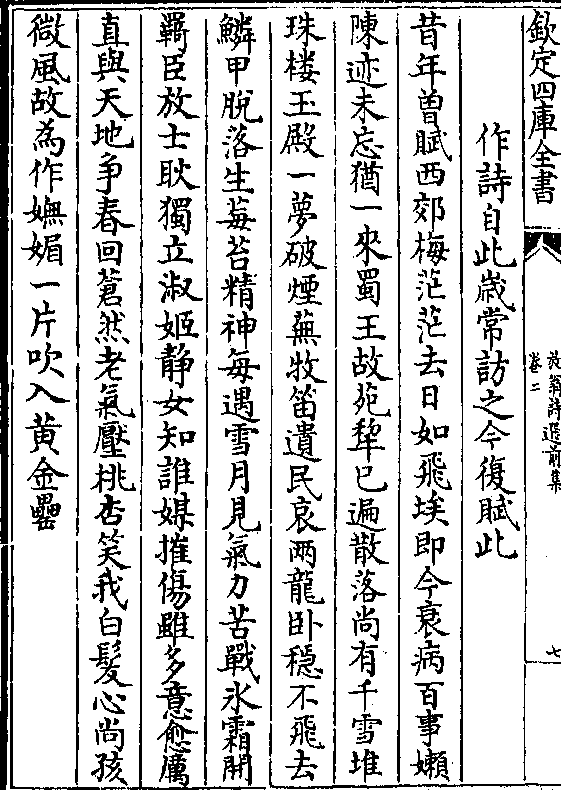 欽定四庫全書
放翁詩選前集
卷二
七
作詩自此歲常訪之今復賦此
昔年曽賦西郊梅茫茫去日如飛埃即今衰病百事嬾
陳迹未忘猶一來蜀王故苑犂已遍散落尚有千雪堆
珠樓玉殿一夢破煙蕪牧笛遺民哀兩龍臥穩不飛去
鱗甲脫落生莓苔精神每遇雪月見氣力苦戰氷霜開
羈臣放士耿獨立淑姬静女知誰媒摧傷雖多意愈厲
直與天地争春回蒼然老氣壓桃杏笑我白髮心尚孩
微風故為作嫵媚一片吹入黄金罍